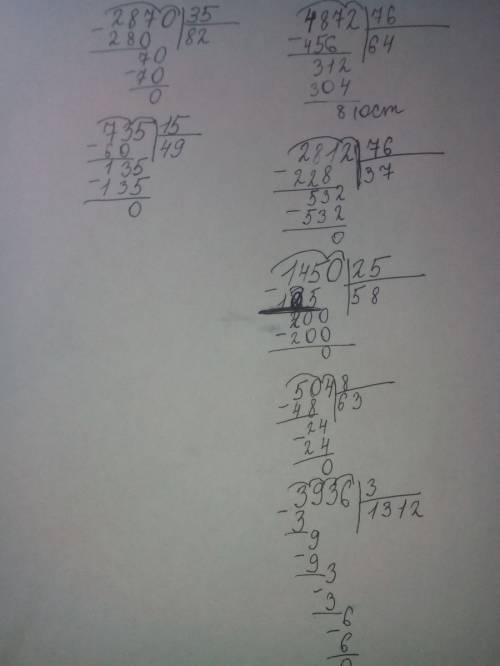 2870 35
- 280 82
70
- 70
0
735 15
- 60 49
135
- 135
0
4872 76
- 456 64
312
304
8 (ост
2812 76
- 228 37
532
- 532
0
1450 25
- 125 58
200
- 200
0
504 8
- 48 63
24
- 24
0
3936 3
- 3 1312
9
- 9
3
- 3
6
- 6
0